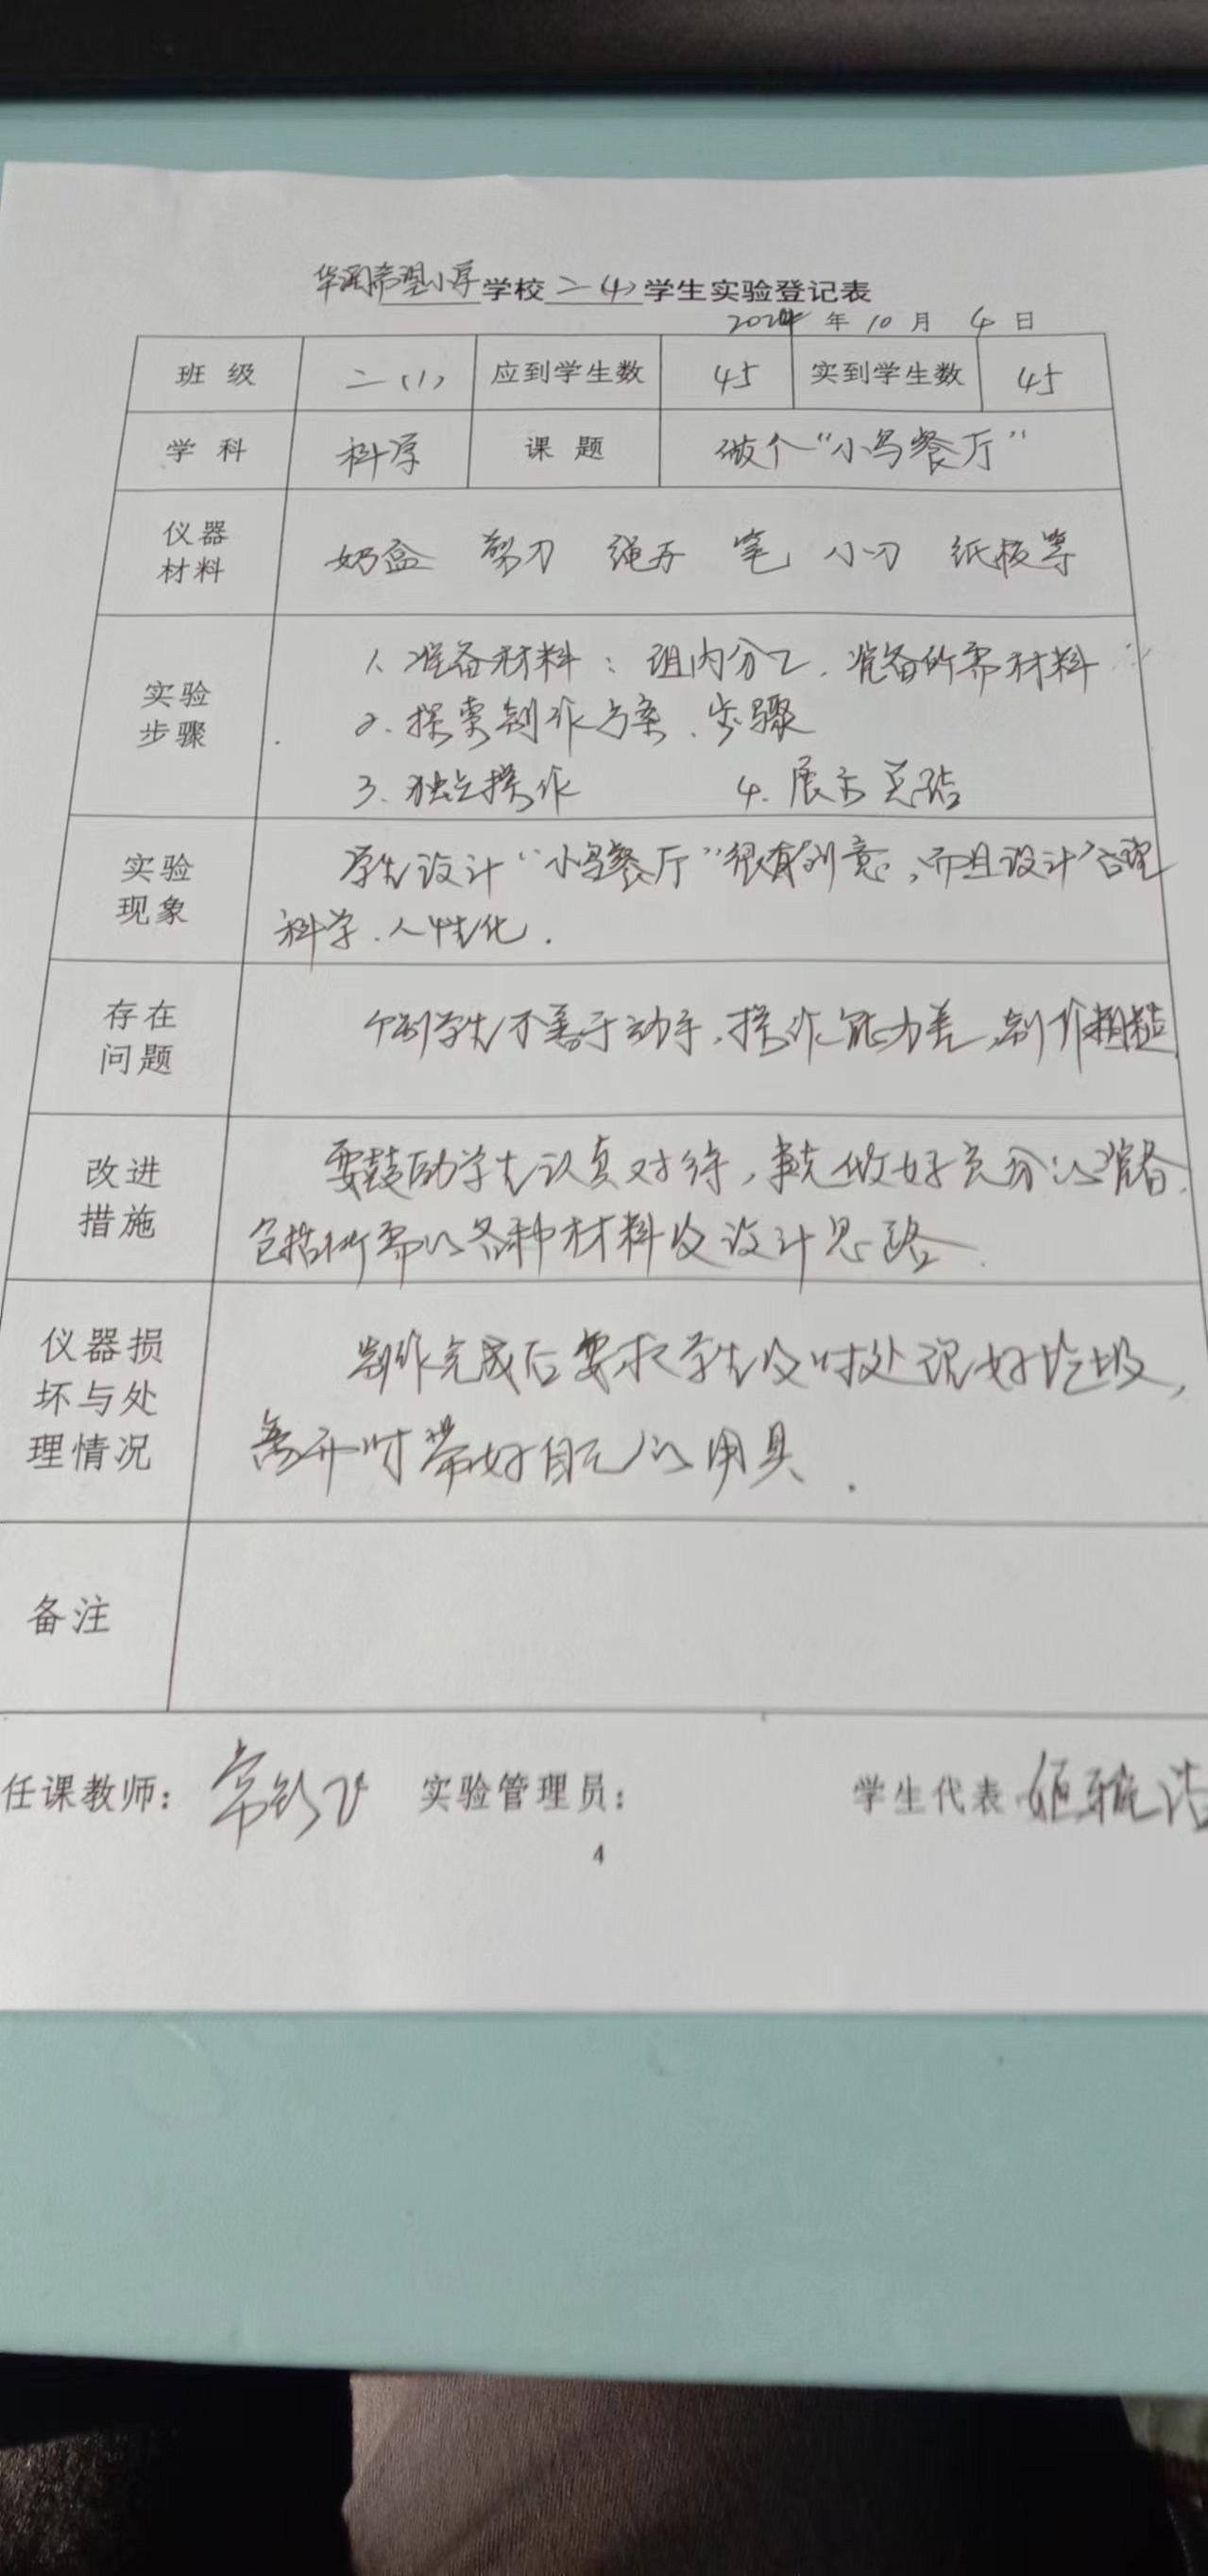 华润希望小学学校二(1)学生实验登记表
2024年10月4日
班级 二(1) 应到学生数 45 实到学生数 45
学科 科学 课题 做个“小鸟餐厅”
仪器
材料
奶盒 剪刀 绳子 笔 小刀 纸板等
实验
步骤
1、准备材料：组内分工、准备所需材料
2、探索制作方案、步骤
3、独立操作 4、展示总结
实验
现象
学生设计“小鸟餐厅”很有创意，而且设计合理
科学、人性化.
存在
问题
个别学生不善于动手，操作能力差，制作粗糙
改进
措施
要鼓励学生认真对待，事先做好充分的准备、
包括所需的各种材料及设计思路.
仪器损
坏与处
理情况
制作完成后要求学生及时处理好垃圾，
离开时带好自己的用具.
备注
任课教师： 实验管理员： 学生代表
4